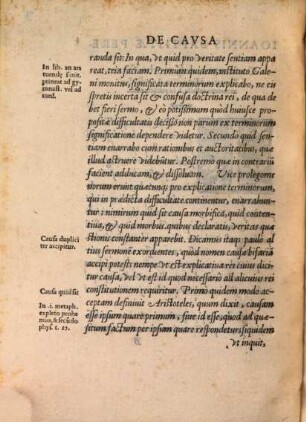 DE CAVSA
randa sit: In qua, vt quid pro veritate sentiam appa
reat, tria faciam. Primùm quidem, instituto Gale
ni monitus, significata terminorum explicabo, ne eis
spretis incerta sit & confusa doctrina rei, de qua de
bet fieri sermo, & eò potissimum quòd huiusce pro-
positæ difficultatis decisio non parùm ex terminorum
significatione dependere videtur. Secundo quid sen-
tiam enarrabo cum rationibus et auctoritatibus, quæ
illud astruere videbūtur. Postremo quæ in contrariū
facient adducam, & dissoluam. Vice prologome
norum erunt quæcunq; pro explicatione terminorum,
qui in prædicta difficultate continentur, enarrabun-
tur: nimirum quid sit causa morbifica, quid conten-
tiua, & quid morbus, quibus declaratis, veritas quæ-
stionis constanter apparebit. Dicamus itaq; paulo al
tius sermonē exordientes, quòd nomen causæ bifariā
accipi potest: nempe vt est explicatiua rei siue vt di-
citur causa, vel vt est id quod necessariò ad alicuius rei
constitutionem requiritur. Primo quidem modo ac-
ceptam definiuit Aristoteles, quum dixit, causam
esse ipsum quare primum, siue id esse, quod ad quæ-
situm factum per ipsum quare respondetur: siquidem
vt inquit,
In lib. an ars
tuendę sanit.
pertineat ad gy
mnast. vel ad
med.
Causa duplici
ter accipitur.
Causa quid sit
In .1. metaph.
expleto prohœ
mio, & secūdo
phys. t. 27.